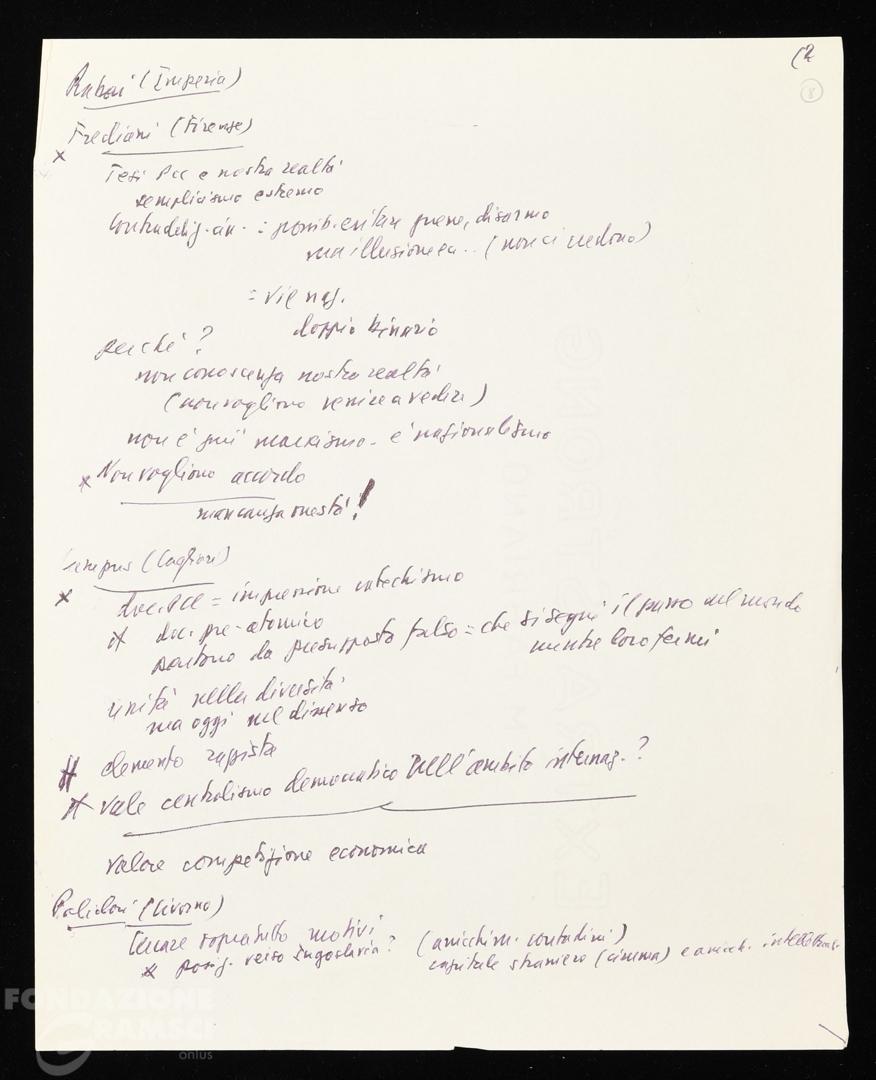 (2
8
(Imperia)
Frediani (Firenze)
x
Tesi PCC e nostra realtà
semplicismo estremo
: possib. evitare guerre, disarmo
ma illusione ca.. (non ci credono)
= vie naz.
doppio binario
perché?
non conoscenza nostra realtà
(non vogliono venire a vedere)
non è più marxismo - è nazionalismo
x Non vogliono accordo
mancanza onestà!
(Cagliari)
x
doc. PCC = impressione catechismo
x doc. pre-atomico
partono da presupposto falso = che si segni il passo nel mondo
mentre loro fermi
unità nella diversità
ma oggi nel dissenso
# elemento razzista
x vale centralismo democratico nell'ambito internaz.?
valore competizione economica
(Livorno)
motivi
x posiz. verso Jugoslavia? (arricchim. contadini)
capitale straniero (cinema) e
FONDAZIONE
GRAMSCI
onlus